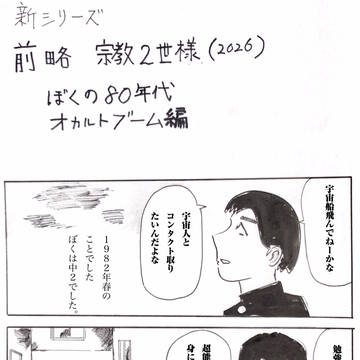 新シリーズ
前略 宗教2世様(2026)
ぼくの80年代
オカルトブーム編
宇宙船飛んでねーかな
宇宙人と
コンタクト取り
たいんだよな
1982年春の
ことでした
ぼくは中2でした。
勉強
超能
身に